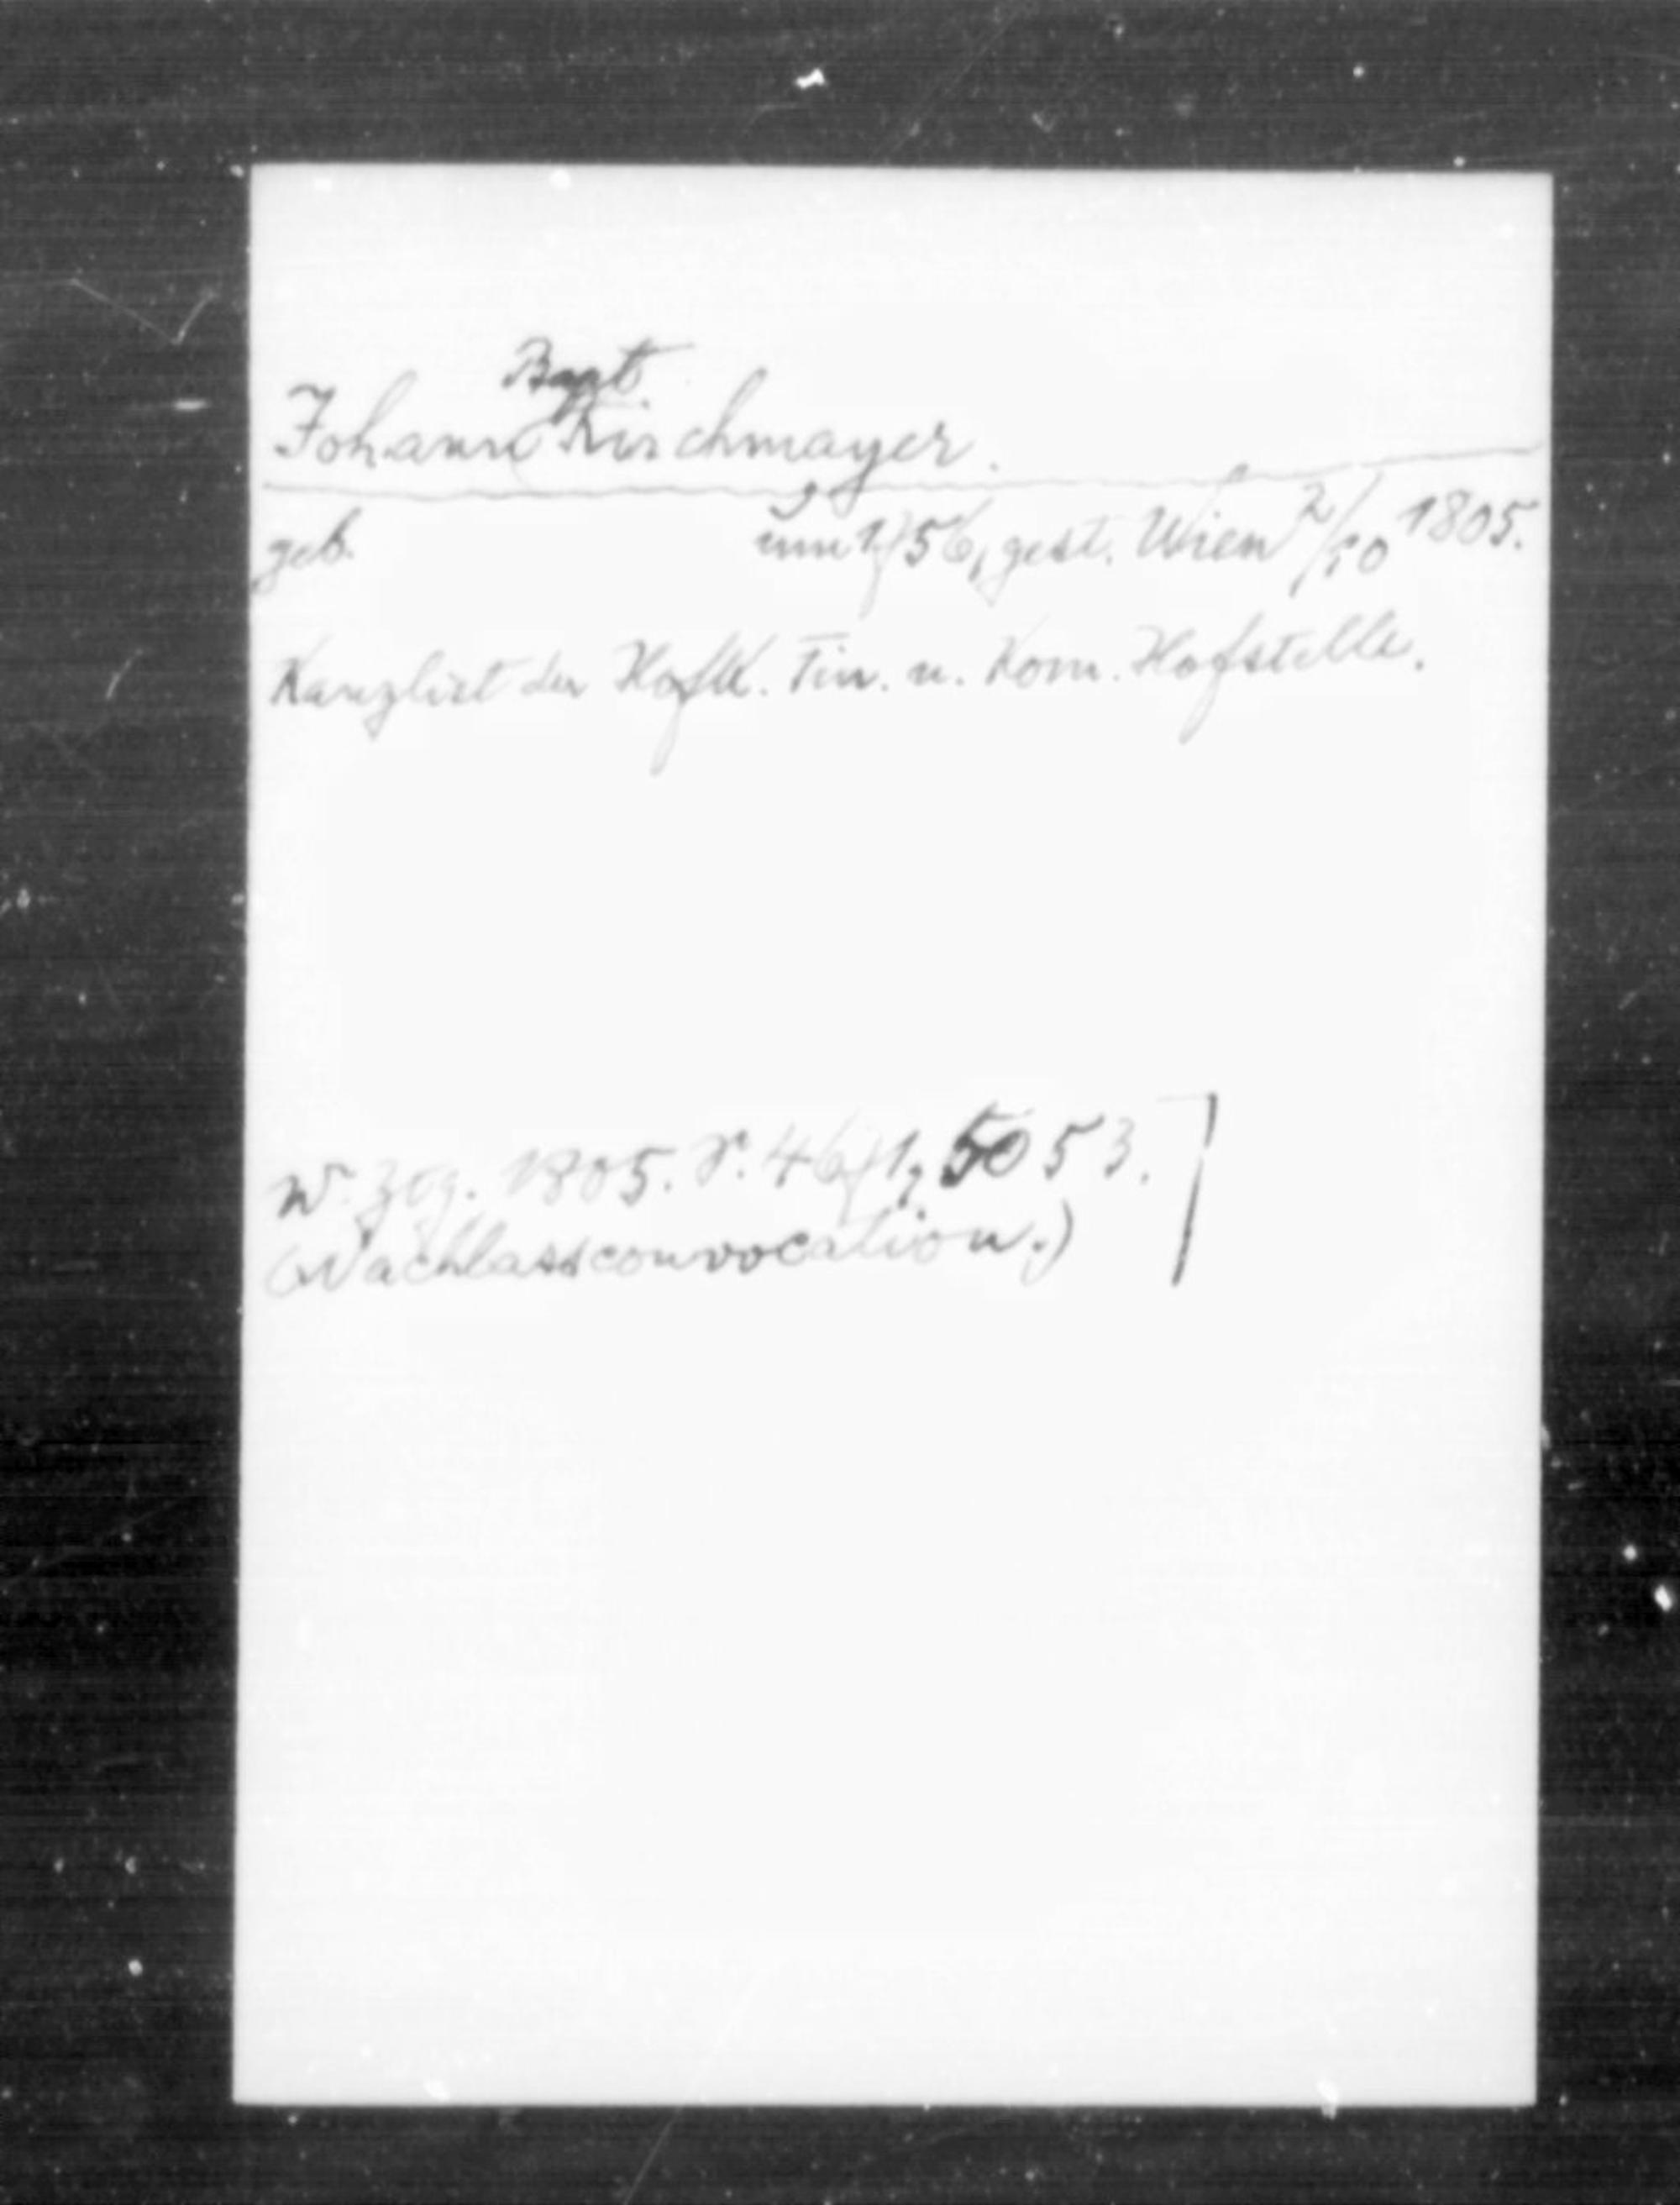 Bapt.
Johann Kirchmayer.
geb. um 1756, gest. Wien 2/10 1805.
Kanzlist der HofK. Fin. u. Kom. Hofstelle.
W. Ztg. 1805. S. 4671, 5053.
(Nachlassconvocation.)